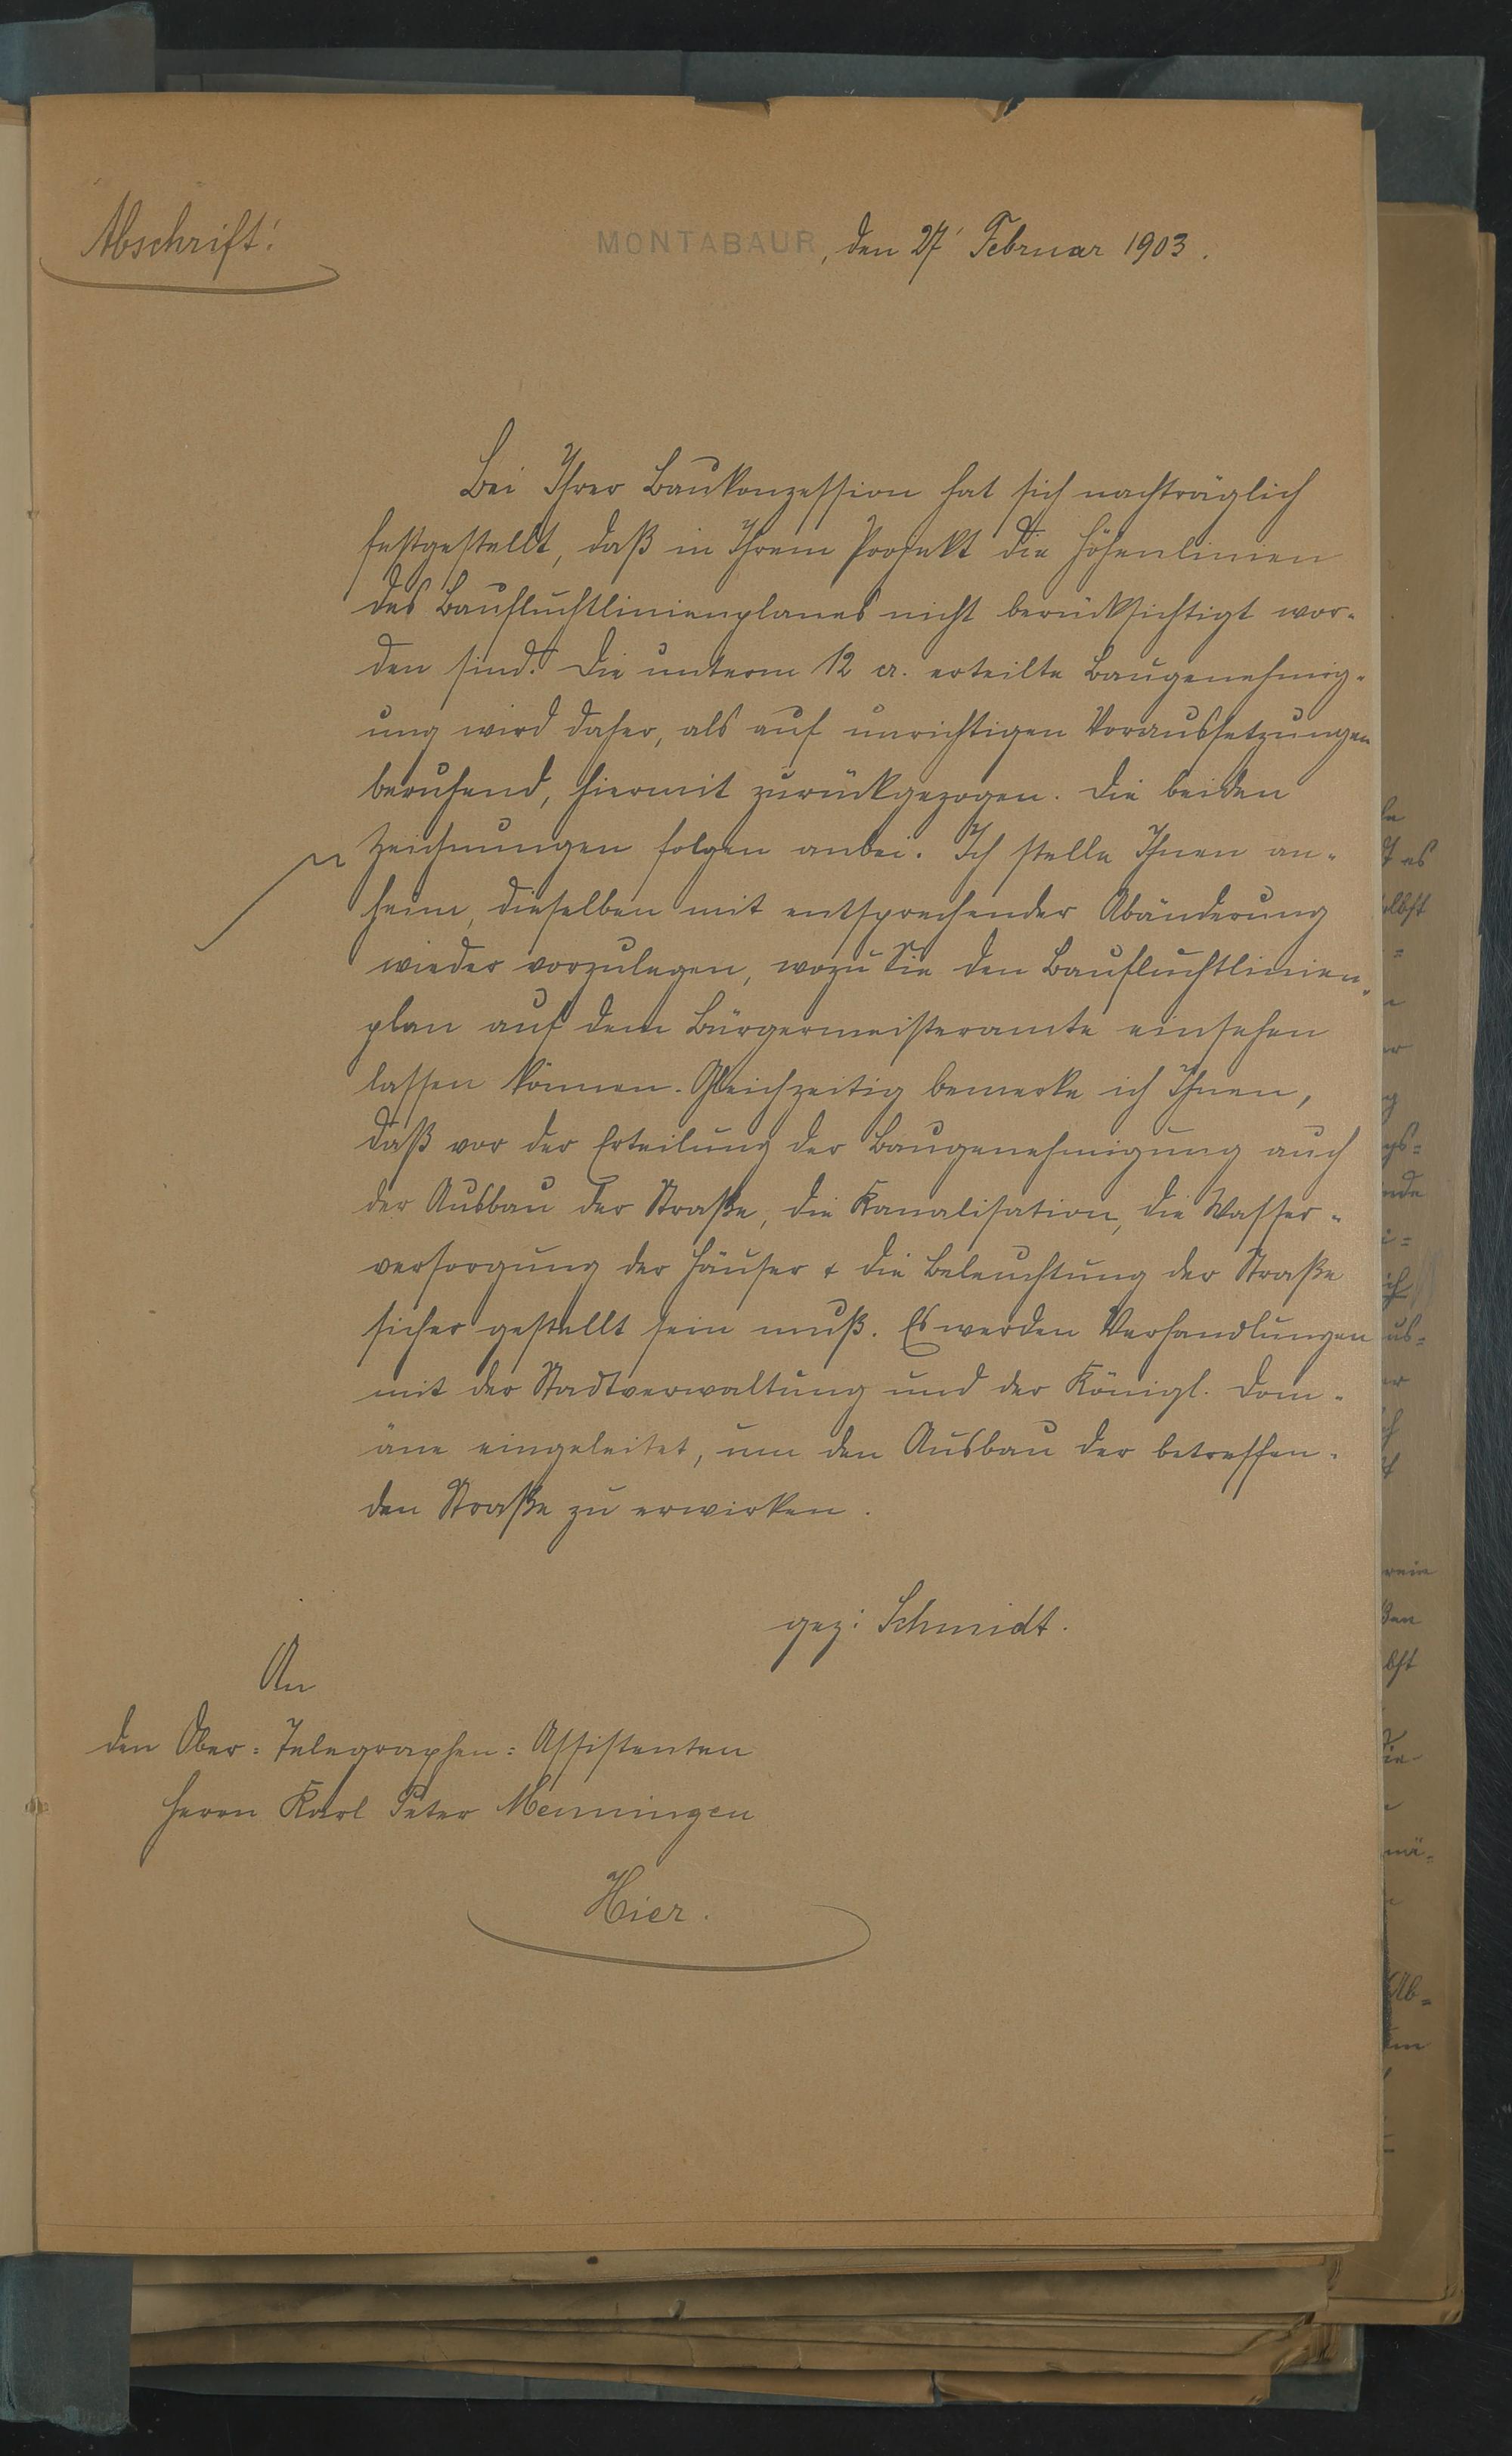 Abschrift!
MONTABAUR, den 27' Februar 1903.
Bei Ihrer Baukonzession hat sich nachträglich
festgestellt, daß in Ihrem Projekt die Höhenlinien
des Baufluchtlinienplanes nicht berücksichtigt wor-
den sind. Die unterm 12 cr. erteilte Baugenehmig-
ung wird daher, als auf unrichtigen Voraussetzungen
beruhend, hiermit zurückgezogen. Die beiden
Zeichnungen folgen anbei. Ich stelle Ihnen an-
heim, dieselben mit entsprechender Abänderung
wieder vorzulegen, wozu Sie den Baufluchtlinien-
plan auf dem Bürgermeisteramte einsehen
lassen können. Gleichzeitig bemerke ich Ihnen,
daß vor der Erteilung der Baugenehmigung auch
der Ausbau der Straße, die Kanalisation, die Wasser-
versorgung der Häuser & die Beleuchtung der Straße
sicher gestellt sein muß. Es werden Verhandlungen
mit der Stadtverwaltung und der Königl. Dom-
äne eingeleitet, um den Ausbau der betreffen-
den Straße zu erwirken.
gez: Schmidt.
An
den Ober-Telegraphen-Assistenten
Herrn Karl Peter Menningen
Hier.